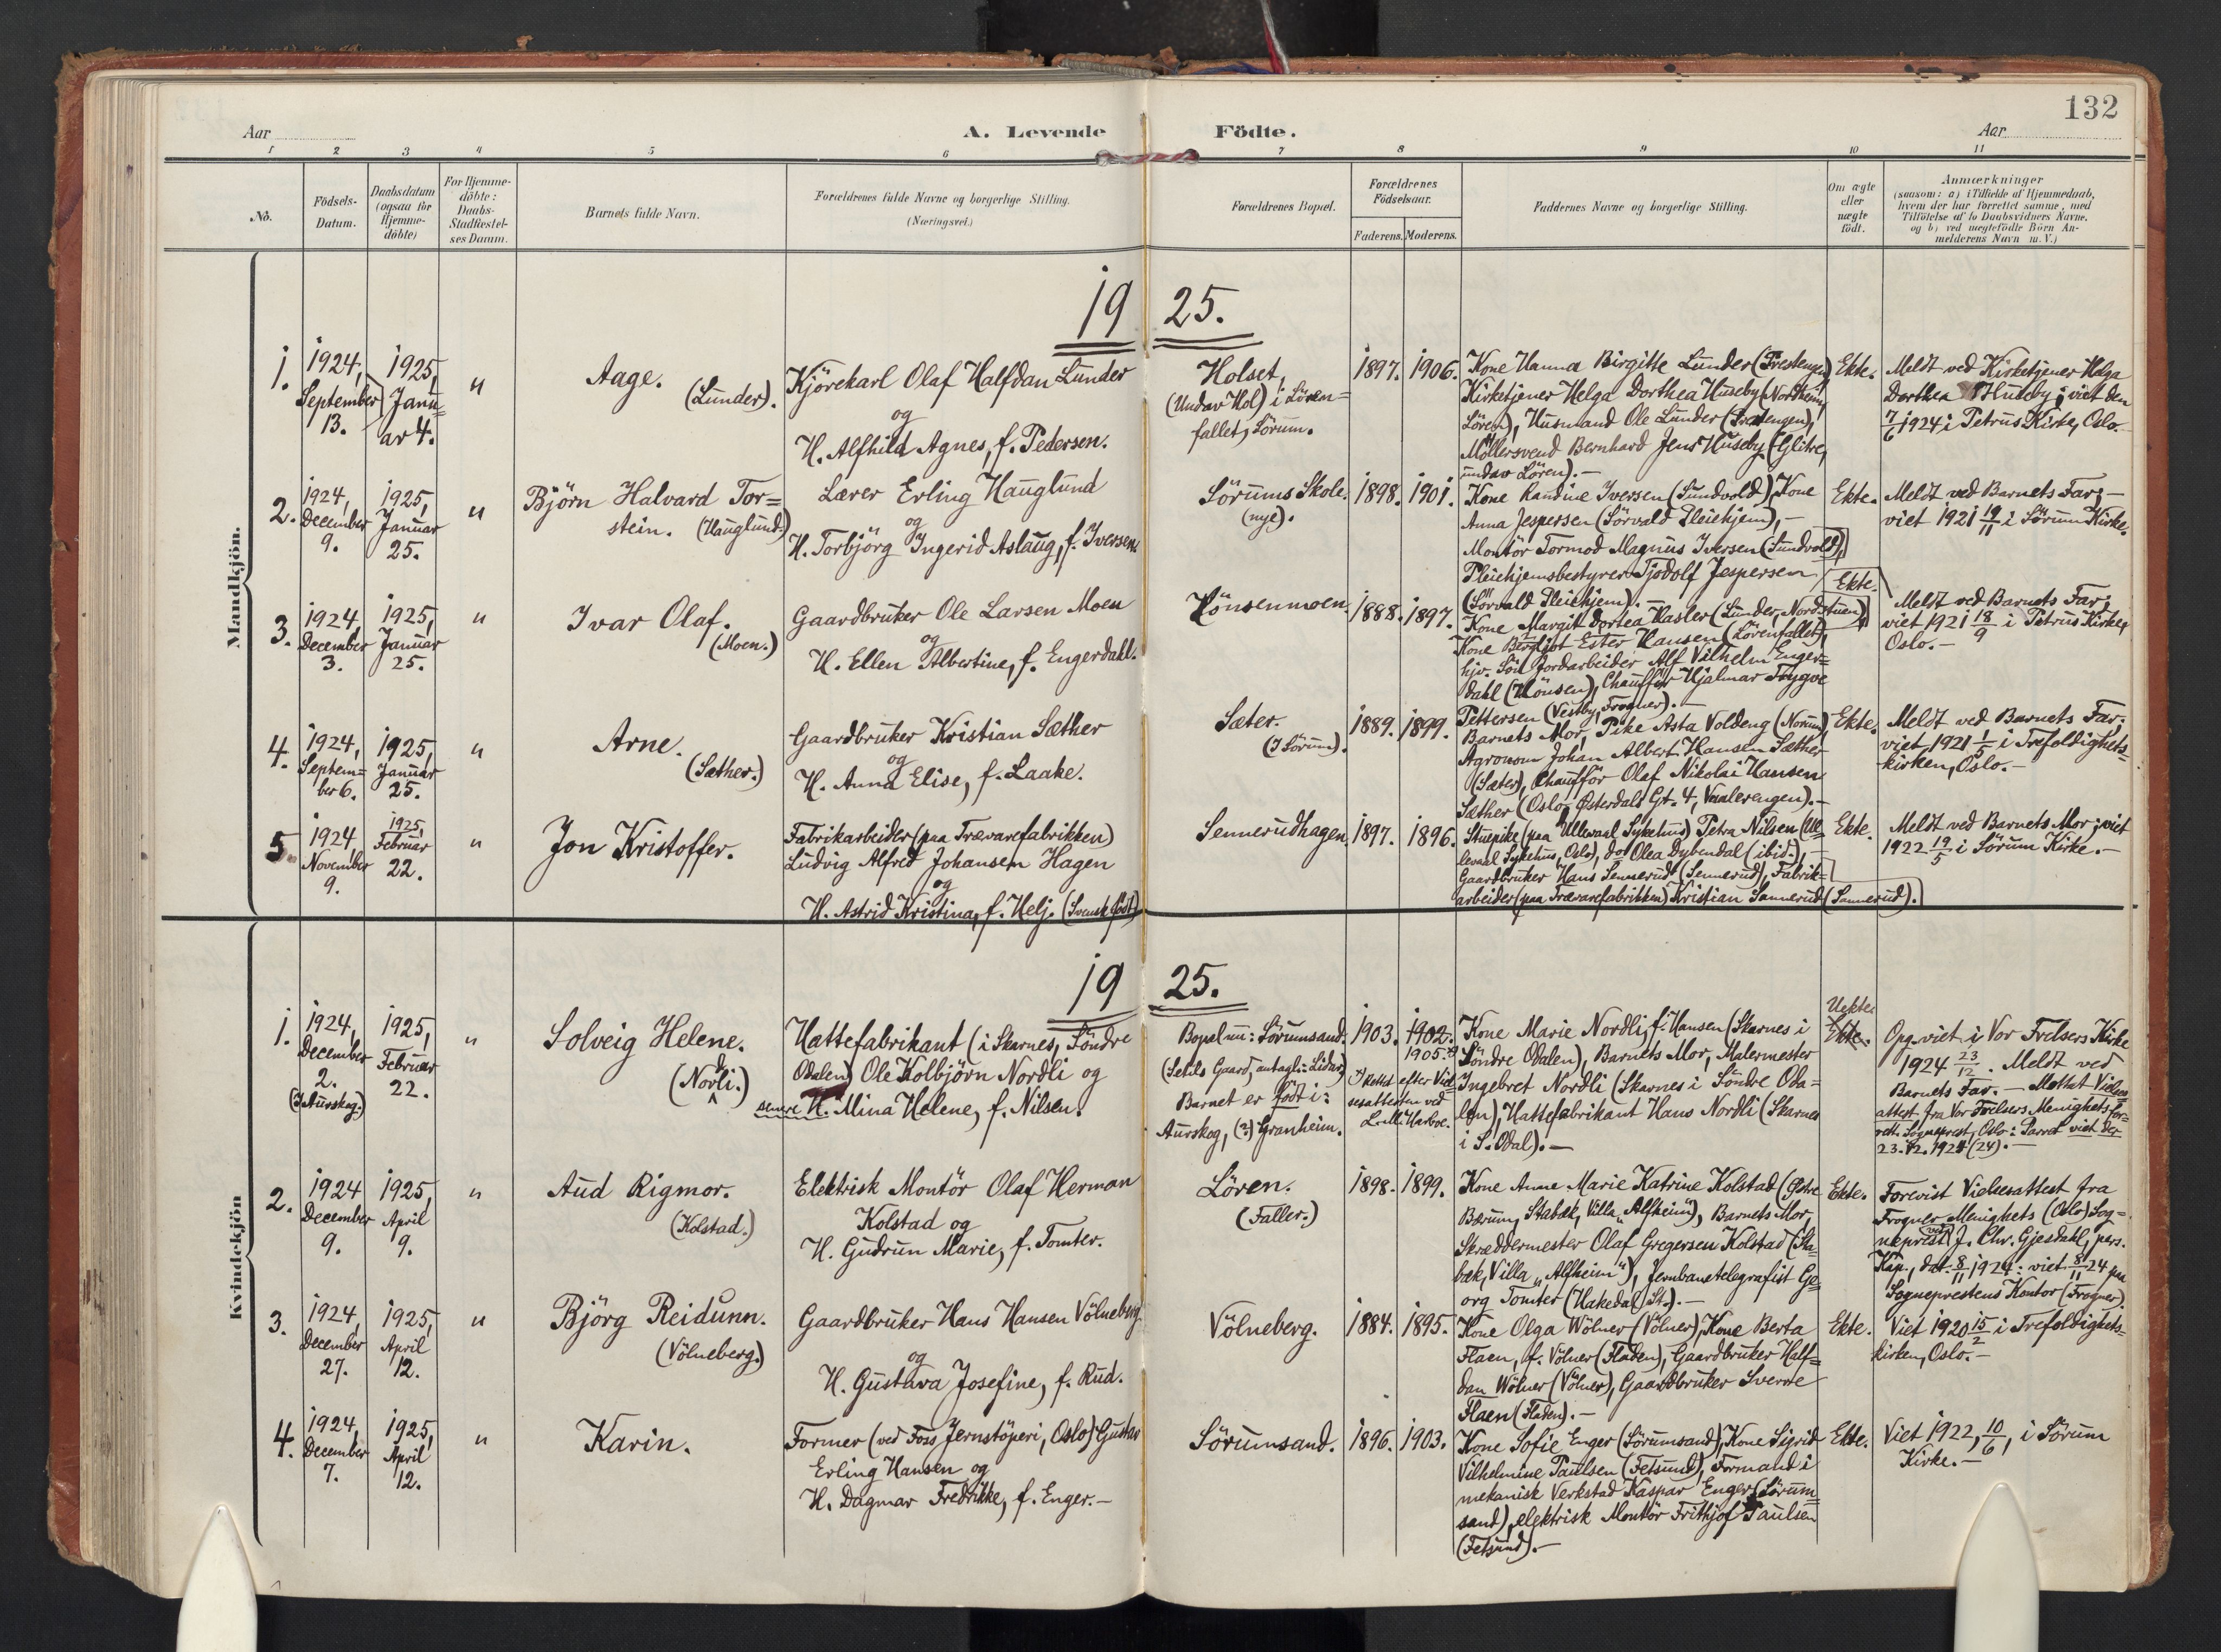 132
Aar
A. Levende
Födte.
Aar
1
2
3
4
5
6
7
8
9
10
11
No.
Födsels-
Datum.
Daabsdatum
(ogsaa for
Hjemme-
döbte)
For Hjemme-
döbte:
Daabs-
Stadfæstel-
ses Datum.
Barnets fulde Navn.
Forældrenes fulde Navne og borgerlige Stilling.
(Næringsvei.)
Forældrenes Bopæl.
Forældrenes
Födselsaar.
Faderens.
Moderens.
Faddernes Navne og borgerlige Stilling.
Om ægte
eller
uægte
födt.
Anmærkninger
(saasom: a) i Tilfælde af Hjemmedaab,
hvem der har forrettet samme, med
Tilföielse af to Daabsvidners Navne,
og b) ved uægtefödte Börn An-
melderens Navn m. V.)
Mandkjön.
1925.
1.
1924,
September
13.
1925,
Janu=
ar 4.
"
Aage.
(Lunder).
Kjörekarl Olaf Halfdan Lunder
og
H. Alfhild Agnes, f. Pedersen.
Holset,
(Undav Hol) i Lören=
fallet, Sörum.
1897.
1906.
Kone Hanna Birgitte Lunder
Kirketjener Helga Dorthea Huseby (Nordheim,
Lören), Husmand Ole Lunder
Möllersvend Bernhard Jens Huseby (Glitre,
undav Lören). —
Ekte.
Meldt ved Kirketjener Helga
Dorthea Huseby; viet den
7/6 1924 i Petrus Kirke, Oslo. —
2.
1924,
December
9.
1925,
Januar
25.
"
Björn Halvard Tor=
stein. (Hauglund.)
Lærer Erling Hauglund
og
H. Torbjörg Ingerid Aslaug, f. Iversen.
Sörums Skole.
(nye).
1898.
1901.
Kone Randine Iversen (Sundvold), Kone
Anna Jespersen (Sörvald Pleiehjem), —
Montör Tormod Magnus Iversen (Sundvold),
Pleiehjemsbestyrer Tjodolf Jespersen
(Sörvald Pleiehjem). —
Ekte.
Meldt ved Barnets Far; —
viet 1921 19/11 i Sörum Kirke.
3.
1924
December
3.
1925,
Januar
25.
"
Ivar Olaf.
(Moen.)
Gaardbruker Ole Larsen Moen
og
H. Ellen Albertine, f. Engerdahl.
Hönsenmoen.
1888.
1897.
Kone Margit Dortea Hasler (Lunder, Nordstuen)
Kone Bergljot Ester Hansen (Lörenfallet),
hjv. Sön Jordarbeider Alf Vilhelm Enger=
dahl (Hönsen), Chaufför Hjalmar Trygve
Pettersen (Vestby, Frogner). —
Ekte.
Meldt ved Barnets Far;
viet 1921 18/9 i Petrus Kirke,
Oslo. —
4.
1924,
Septem=
ber 6.
1925,
Januar
25.
"
Arne.
(Sæther.)
Gaardbruker Kristian Sæther
og
H. Anna Elise, f. Laake.
Sæter.
(I Sörum).
1889.
1899.
Barnets Mor, Pike Asta Voldeng (Norum),
Agronom Johan Albert Hansen Sæther
(Sæter), Chaufför Olaf Nikolai Hansen
Sæther (Oslo, Østerdals Gt. 4, Vaalerengen). —
Ekte.
Meldt ved Barnets Far;
viet 1921 1/5 i Trefoldigheds=
kirken, Oslo. —
5.
1924,
November
9.
1925,
Februar
22.
"
Jon Kristoffer.
Fabrikarbeider (paa Trævarefabrikken)
Ludvig Alfred Johansen Hagen
og
H. Astrid Kristina, f. Helj. (Svensk födt)
Sennerudhagen.
1897.
1896.
Stuepike (paa Ullevaal Sykehus) Petra Nilsen (Ul=
levaal Sykehus, Oslo), do. Olea Dybendal (ibid.), —
Gaardbruker Hans Sennerud (Sennerud), Fabrik=
arbeider (paa Trævarefabrikken) Kristian Sannerud (Sannerud).
Ekte.
Meldt ved Barnets Mor; viet
1922 19/5 i Sörum Kirke. —
Kvindekjön
1925.
1.
1924,
December
2.
(I Aurskog.)
1925,
Februar
22.
"
Solveig Helene.
(Nordli.)
Hattefabrikant (i Skarnes, Söndre
Odalen) Ole Kolbjörn Nordli og
senere H. Mina Helene, f. Nilsen.
Bopæl nu: Sörumsand.
Barnet er födt i:
Aurskog, (?) Granheim.
1903.
1902.
1905.
rettet efter Viel=
sesattesten ved
Harboe.
Kone Marie Nordli, f. Hansen (Skarnes i
Söndre Odalen), Barnets Mor, Malermester
Ingebret Nordli (Skarnes i Söndre Oda=
len), Hattefabrikant Hans Nordli (Skarnes
i S. Odal). —
Uekte
Ekte.
Opg. viet i Vor Frelsers Kirke
1924 23/12. Meldt ved
Barnets Far. — Mottat Vielses
attest fra Vor Frelsers Menighets for=
rett. Sogneprest, Oslo: Parret viet der
23.12.1924 (24). —
2.
1924
December
9.
1925,
April
9.
"
Aud Rigmor.
(Kolstad.)
Elektrisk Montör Olaf Herman
Kolstad og
H. Gudrun Marie, f. Tomter.
Lören.
(Faller.)
1898.
1899.
Kone Anne Marie Katrine Kolstad (Østre
Bærum, Stabæk, Villa „Alfheim“), Barnets Mor,
Skræddermester Olaf Gregersen Kolstad (Sta=
bæk, Villa „Alfheim“), Jernbanetelegrafist Ge=
org Tomter (Hakedal St.). —
Ekte.
Forevist Vielsesattest fra
Frogner Menighets (Oslo) Sog=
neprest ved J. Chr. Gjesdahl, pers.
Kap., dat. 8/11 1924: viet 8/11 24 paa
Sogneprestens Kontor (Frogner).
3.
1924,
December
27.
1925,
April
12.
"
Björg Reidunn.
(Völneberg.)
Gaardbruker Hans Hansen Völneberg
og
H. Gustava Josefine, f. Rud.
Völneberg.
1884.
1895.
Kone Olga Wölner (Völner), Kone Berta
Flaen, f. Völner (Fladen), Gaardbruker Half=
dan Wölner (Völner), Gaardbruker Sverre
Flaen (Fladen). —
Ekte.
Viet 1920 15/2 i Trefoldigheds=
kirken, Oslo. —
4.
1924,
December
7.
1925,
April
12.
"
Karin.
Former (ved Foss Jernstöperi, Oslo) Gustav
Erling Hansen og
H. Dagmar Fredrikke, f. Enger. —
Sörumsand.
1896.
1903.
Kone Sofie Enger (Sörumsand), Kone Sigrid
Vilhelmine Paulsen (Fetsund), Formand i
mekanisk Verkstad Kaspar Enger (Sörum=
sand), elektrisk Montör Frithjof Paulsen
(Fetsund). —
Ekte.
Viet 1922, 10/6, i Sörum
Kirke. —